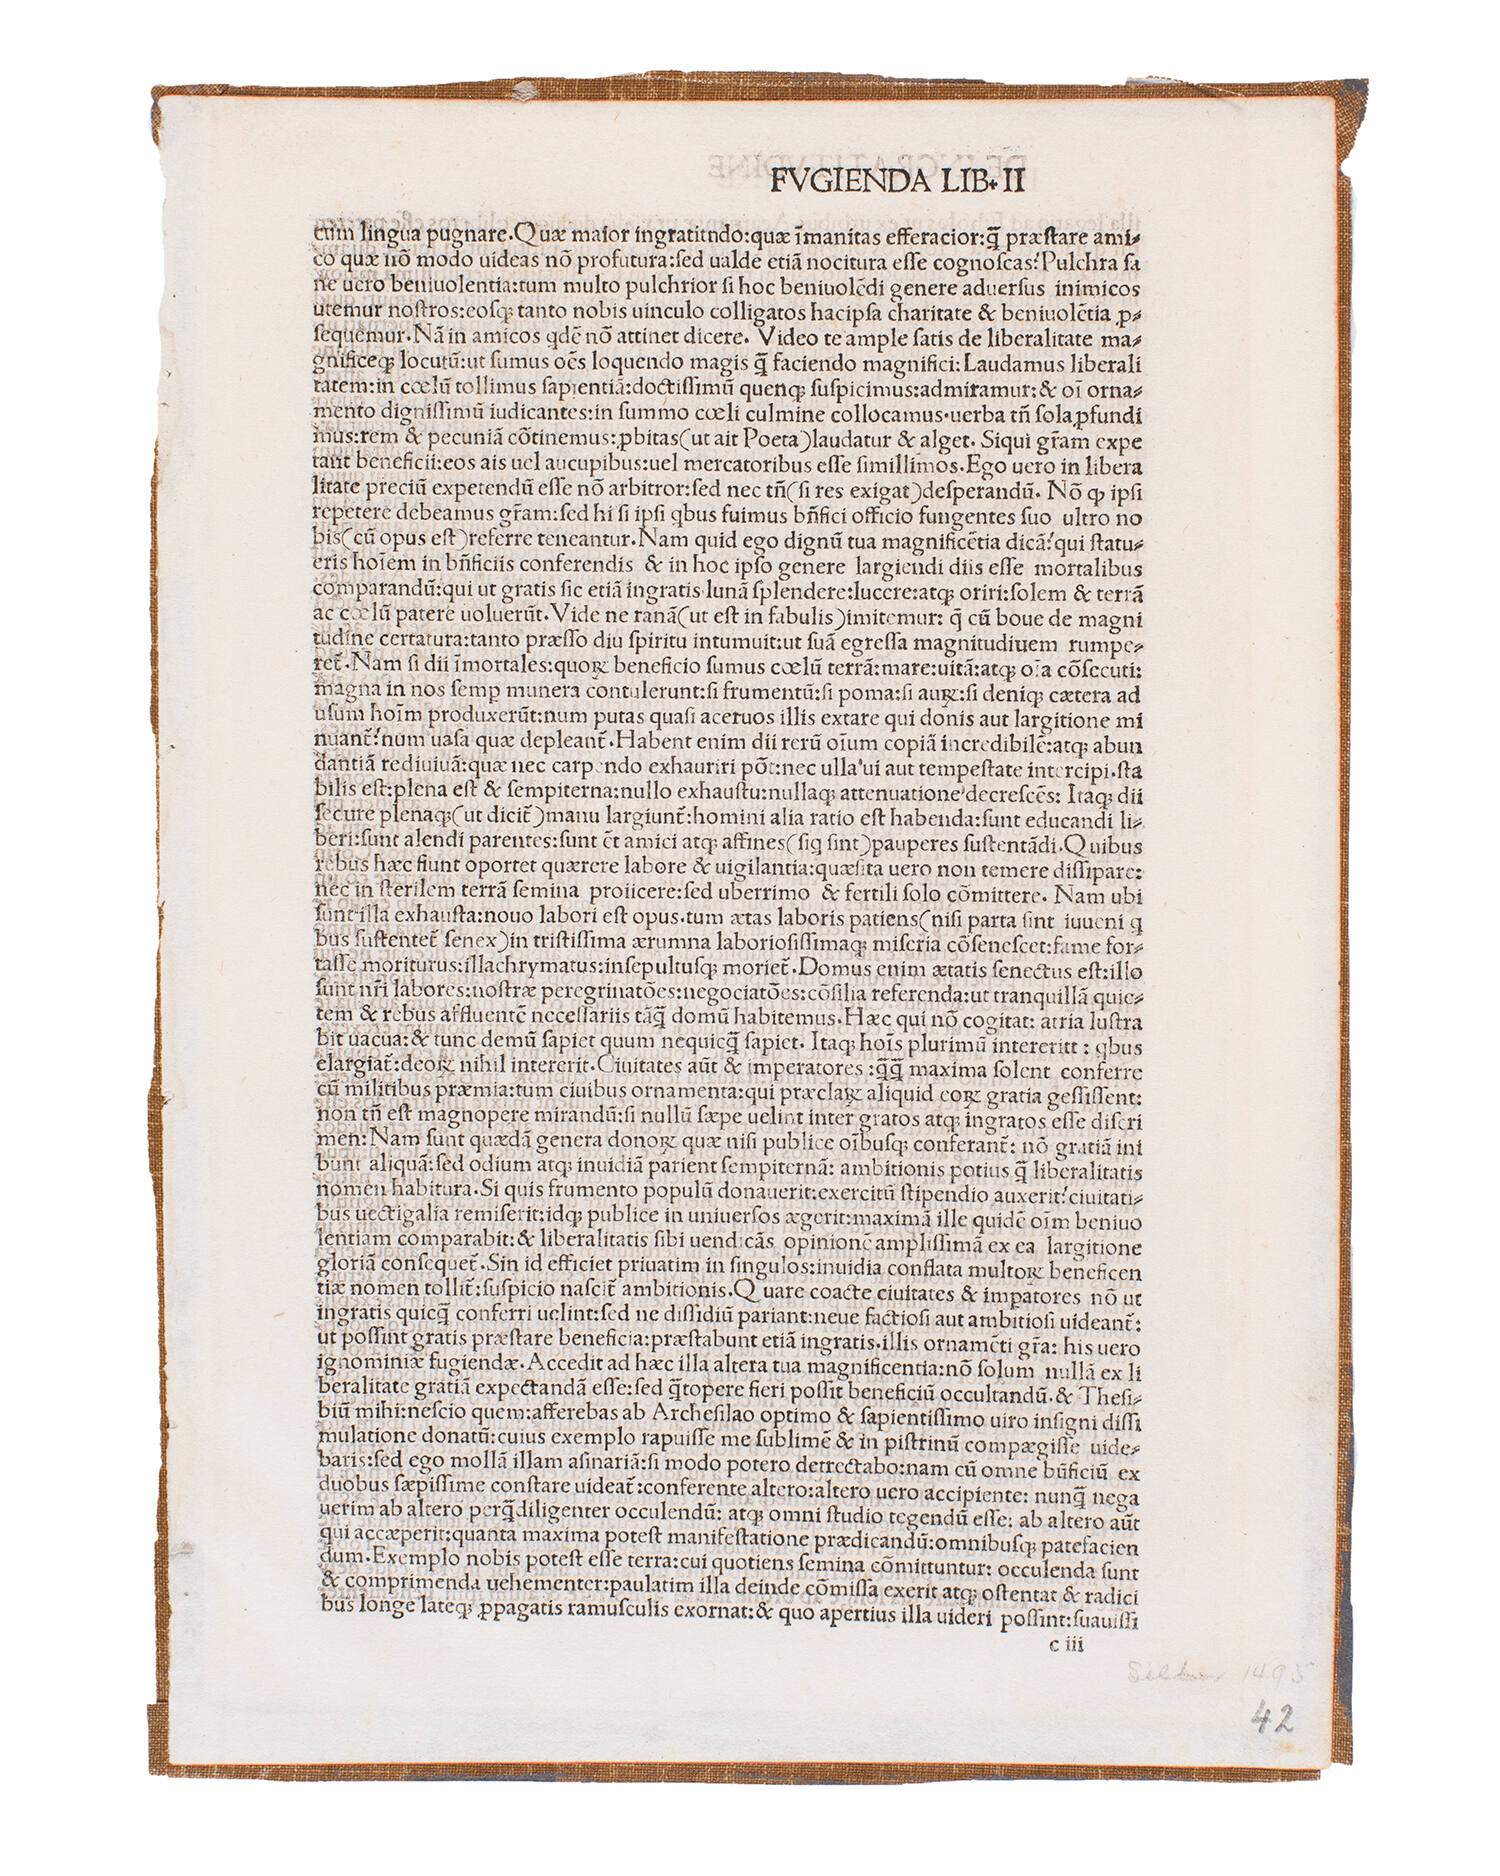 FVGIENDA LIB. II
cum lingua pugnare. Quæ maior ingratitndo: quæ īmanitas efferacior: q̄ præstare ami⸗
co quæ nō modo uideas nō profutura: sed ualde etiā nocitura esse cognoscas? Pulchra sa
ne uero beniuolentia: tum multo pulchrior si hoc beniuolēdi genere aduersus inimicos
utemur nostros: eosq; tanto nobis uinculo colligatos hacipsa charitate & beniuolētia ꝓ⸗
sequemur. Nā in amicos qdē nō attinet dicere. Video te ample satis de liberalitate ma⸗
gnificeq; locutū: ut sumus oēs loquendo magis q̄ faciendo magnifici: Laudamus liberali
tatem: in cœlū tollimus sapientiā: doctissimū quenq; suspicimus: admiramur: & oī orna⸗
mento dignissimū iudicantes: in summo cœli culmine collocamus. uerba tñ sola ꝓfundi
mus: rem & pecuniā cōtinemus: ꝓbitas (ut ait Poeta) laudatur & alget. Siqui grām expe
tant beneficii: eos ais uel aucupibus: uel mercatoribus esse simillimos. Ego uero in libera
litate preciū expetendū esse nō arbitror: sed nec tñ (si res exigat) desperandū. Nō ꝙ ipsi
repetere debeamus grām: sed hi si ipsi qbus fuimus bñfici officio fungentes suo ultro no
bis (cū opus est) referre teneantur. Nam quid ego dignū tua magnificētia dicā? qui statu⸗
eris hoīem in bñficiis conferendis & in hoc ipso genere largiendi diis esse mortalibus
comparandū: qui ut gratis sic etiā ingratis lunā splendere: lucere: atq; oriri: solem & terrā
ac cœlū patere uoluerūt. Vide ne ranā (ut est in fabulis) imitemur: q̄ cū boue de magni
tudine certatura: tanto præsso diu spiritu intumuit: ut suā egressa magnitudiuem rumpe⸗
ret̄. Nam si dii īmortales: quoꝝ beneficio sumus cœlū terrā: mare: uitā: atq; oīa cōsecuti:
magna in nos semp munera contulerunt: si frumentū: si poma: si auꝝ: si deniq; cætera ad
usum hoīm produxerūt: num putas quasi aceruos illis extare qui donis aut largitione mi
nuant̄? num uasa quæ depleant̄. Habent enim dii rerū oīum copiā incredibilē: atq; abun
dantiā rediuiuā: quæ nec carpendo exhauriri pōt: nec ulla ui aut tempestate intercipi. sta
bilis est: plena est & sempiterna: nullo exhaustu: nullaq; attenuatione decrescēs: Itaq; dii
secure plenaq; (ut dicit̄) manu largiunt̄: homini alia ratio est habenda: sunt educandi li⸗
beri: sunt alendi parentes: sunt et̄ amici atq; affines (siq sint) pauperes sustentādi. Quibus
rebus hæc fiunt oportet quærere labore & uigilantia: quæsita uero non temere dissipare:
nec in sterilem terrā semina proiicere: sed uberrimo & fertili solo cōmittere. Nam ubi
sunt illa exhausta: nouo labori est opus. tum ætas laboris patiens (nisi parta sint iuueni q
bus sustentet̄ senex) in tristissima ærumna laboriosissimaq; miseria cōsenescet: fame for⸗
tasse moriturus: illachrymatus: insepultusq; moriet̄. Domus enim ætatis senectus est: illo
sunt nr̄i labores: nostræ peregrinatōes: negociatōes: cōsilia referenda: ut tranquillā quie⸗
tem & rebus affluentē necessariis tāq̄ domū habitemus. Hæc qui nō cogitat: atria lustra
bit uacua: & tunc demū sapiet quum nequicq̄ sapiet. Itaq; hoīs plurimū intereritt: qbus
elargiat̄: deoꝝ nihil intererit. Ciuitates aūt & imperatores: q̄q̄ maxima solent conferre
cū militibus præmia: tum ciuibus ornamenta: qui præclaꝝ aliquid eoꝝ gratia gessissent:
non tñ est magnopere mirandū: si nullū sæpe uelint inter gratos atq; ingratos esse discri
men: Nam sunt quædā genera donoꝝ quæ nisi publice oībusq; conferant̄: nō gratiā ini
bunt aliquā: sed odium atq; inuidiā parient sempiternā: ambitionis potius q̄ liberalitatis
nomen habitura. Si quis frumento populū donauerit: exercitū stipendio auxerit? ciuitati⸗
bus uectigalia remiserit: idq; publice in uniuersos ægerit: maximā ille quidē oīm beniuo
lentiam comparabit: & liberalitatis sibi uendicās opinionē amplissimā ex ea largitione
gloriā consequet̄. Sin id efficiet priuatim in singulos: inuidia conflata multoꝝ beneficen
tiæ nomen tollit̄: suspicio nascit̄ ambitionis. Quare coacte ciuitates & impatores nō ut
ingratis quicq̄ conferri uelint: sed ne dissidiū pariant: neue factiosi aut ambitiosi uideant̄:
ut possint gratis præstare beneficia: præstabunt etiā ingratis. illis ornamēti grā: his uero
ignominiæ fugiendæ. Accedit ad hæc illa altera tua magnificentia: nō solum nullā ex li
beralitate gratiā expectandā esse: sed q̄topere fieri possit beneficiū occultandū. & Thesi⸗
biū mihi: nescio quem: afferebas ab Archesilao optimo & sapientissimo uiro insigni dissi
mulatione donatū: cuius exemplo rapuisse me sublimē & in pistrinū compægisse uide⸗
baris: sed ego mollā illam asinariā: si modo potero detrectabo: nam cū omne bñficiū ex
duobus sæpissime constare uideat̄: conferente altero: altero uero accipiente: nunq̄ nega
uerim ab altero perq̄diligenter occulendū: atq; omni studio tegendū esse: ab altero aūt
qui accæperit: quanta maxima potest manifestatione prædicandū: omnibusq; patefacien
dum. Exemplo nobis potest esse terra: cui quotiens semina cōmittuntur: occulenda sunt
& comprimenda uehementer: paulatim illa deinde cōmissa exerit atq; ostentat & radici
bus longe lateq; ꝓpagatis ramusculis exornat: & quo apertius illa uideri possint: suauissi
c iii
1495
42